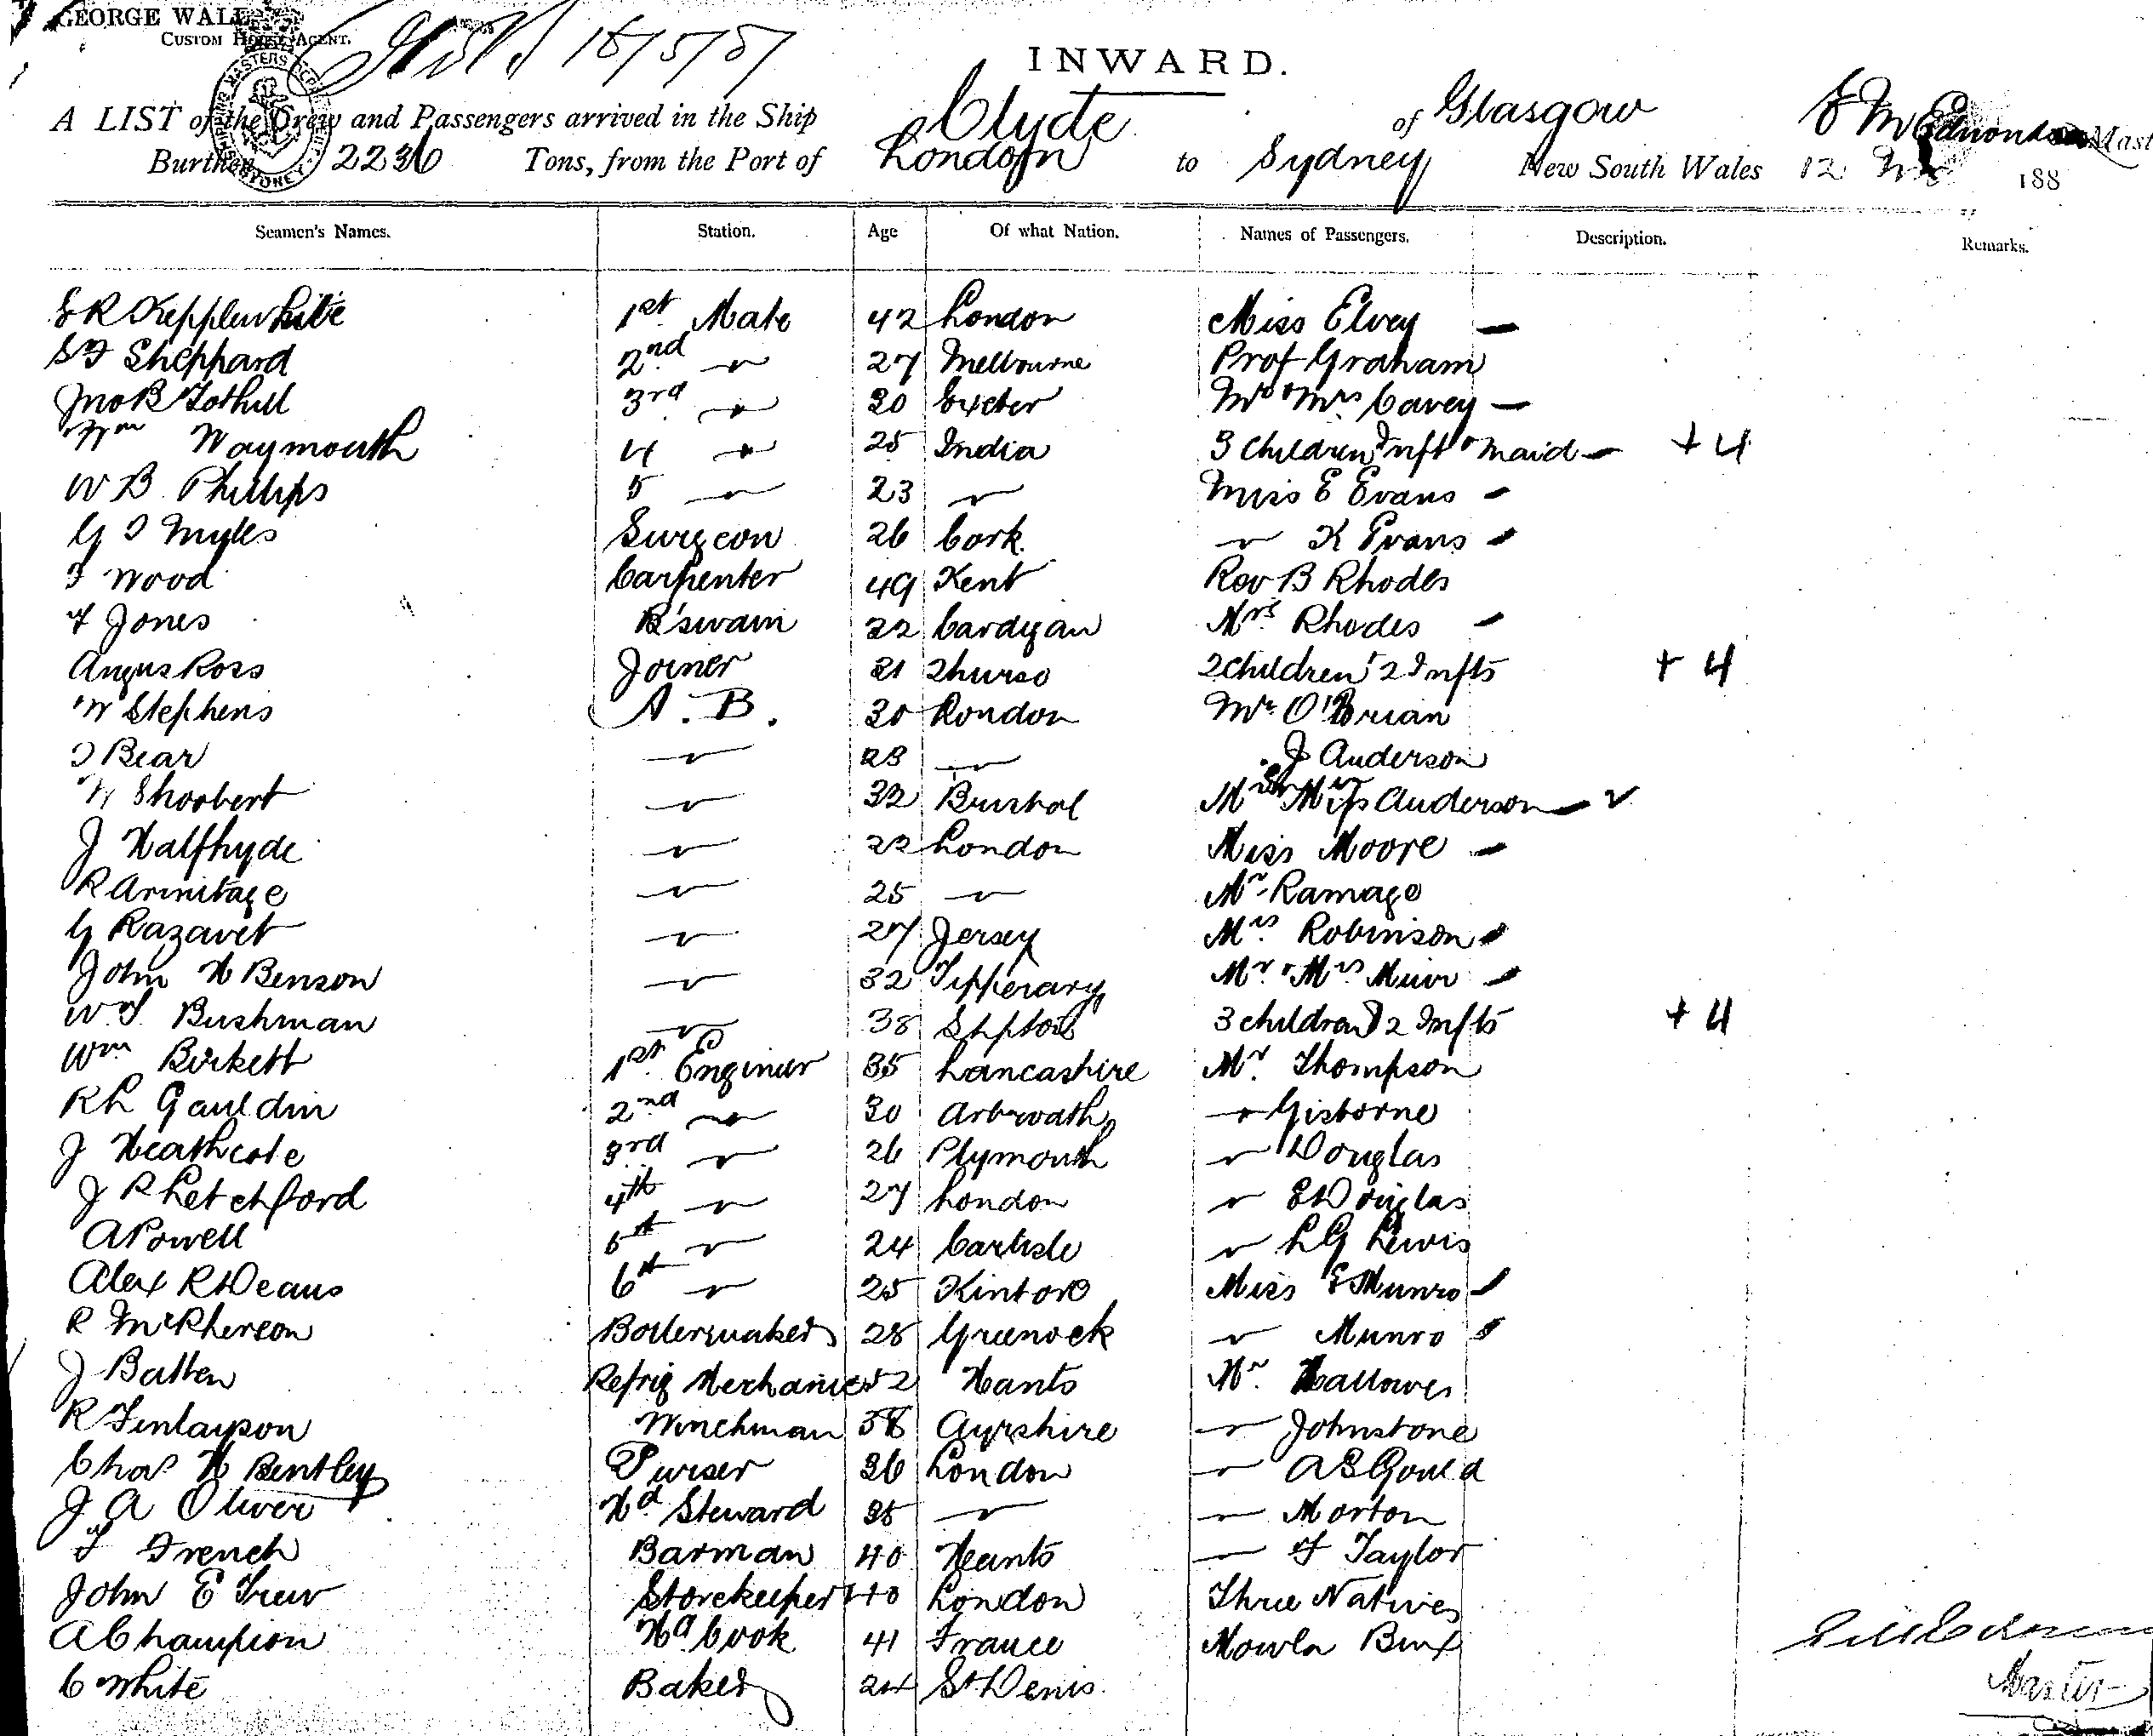 GEORGE WALL
CUSTOM HOUSE AGENT.
INWARD.
A LIST of the Crew and Passengers arrived in the Ship Clyde of Glasgow
Burthen 2236 Tons, from the Port of London to Sydney New South Wales 12 188
Seamen's Names. Station. Age Of what Nation. Names of Passengers. Description. Remarks.
1st Mate 42 London Miss Elvey —
Sheppard 2nd 〃 27 Melbourne Prof Graham
Jno B Tothill 3rd 〃 30 Exeter Mr & Mrs Cavey —
Wm Waymouth 4 〃 25 India 3 Children Inft & maid — + 4
W B Phillips 5 〃 23 〃 Miss E Evans -
G Myles Surgeon 26 Cork 〃 K Evans -
Wood Carpenter 49 Kent Rev B Rhodes
Jones B'swain 32 Cardigan Mrs Rhodes -
Angus Ross Joiner 31 Thurso 2 Children & 2 Infts + 4
W Stephens A. B. 30 London Mr O'Brian
Bear 〃 〃 J Anderson
〃 32 Bristol Anderson —
J Halfhyde 〃 22 London Miss Moore -
R Armitage 〃 25 〃 Mr Ramage
G Razavet 〃 27 Jersey Mrs Robinson -
John H Benson 〃 32 Tipperary Mr & Mrs Muir -
Bushman 〃 38 3 children & 2 Infts + 4
Wm Birkett 1st Engineer 35 Lancashire Mr. Thompson
R L Gauldin 2nd 〃 30 Arbroath 〃 Gisborne
J Heathcote 3rd 〃 26 Plymouth 〃 Douglas
J R Letchford 4th 〃 27 London 〃 E Douglas
A Powell 5th 〃 24 Carlisle 〃 L G Lewis
Alex R Deans 6th 〃 25 Kintore Miss E Munro -
R McPherson Boilermaker 28 Greenock 〃 Munro -
J Batten Refrig Mechanic 52 Hants Mr. Hallowes
R Finlayson Winchman 38 Ayrshire 〃 Johnstone
Chas H Bentley Purser 36 London 〃 A S Gould
J A Oliver Hd Steward 〃 〃 Morton
French Barman 40 Hants 〃 F Taylor
John E Trew Storekeeper 40 London Three Natives
A Champion Hd Cook 41 France Mowla Bux
C White Baker 24 St Denis
Master